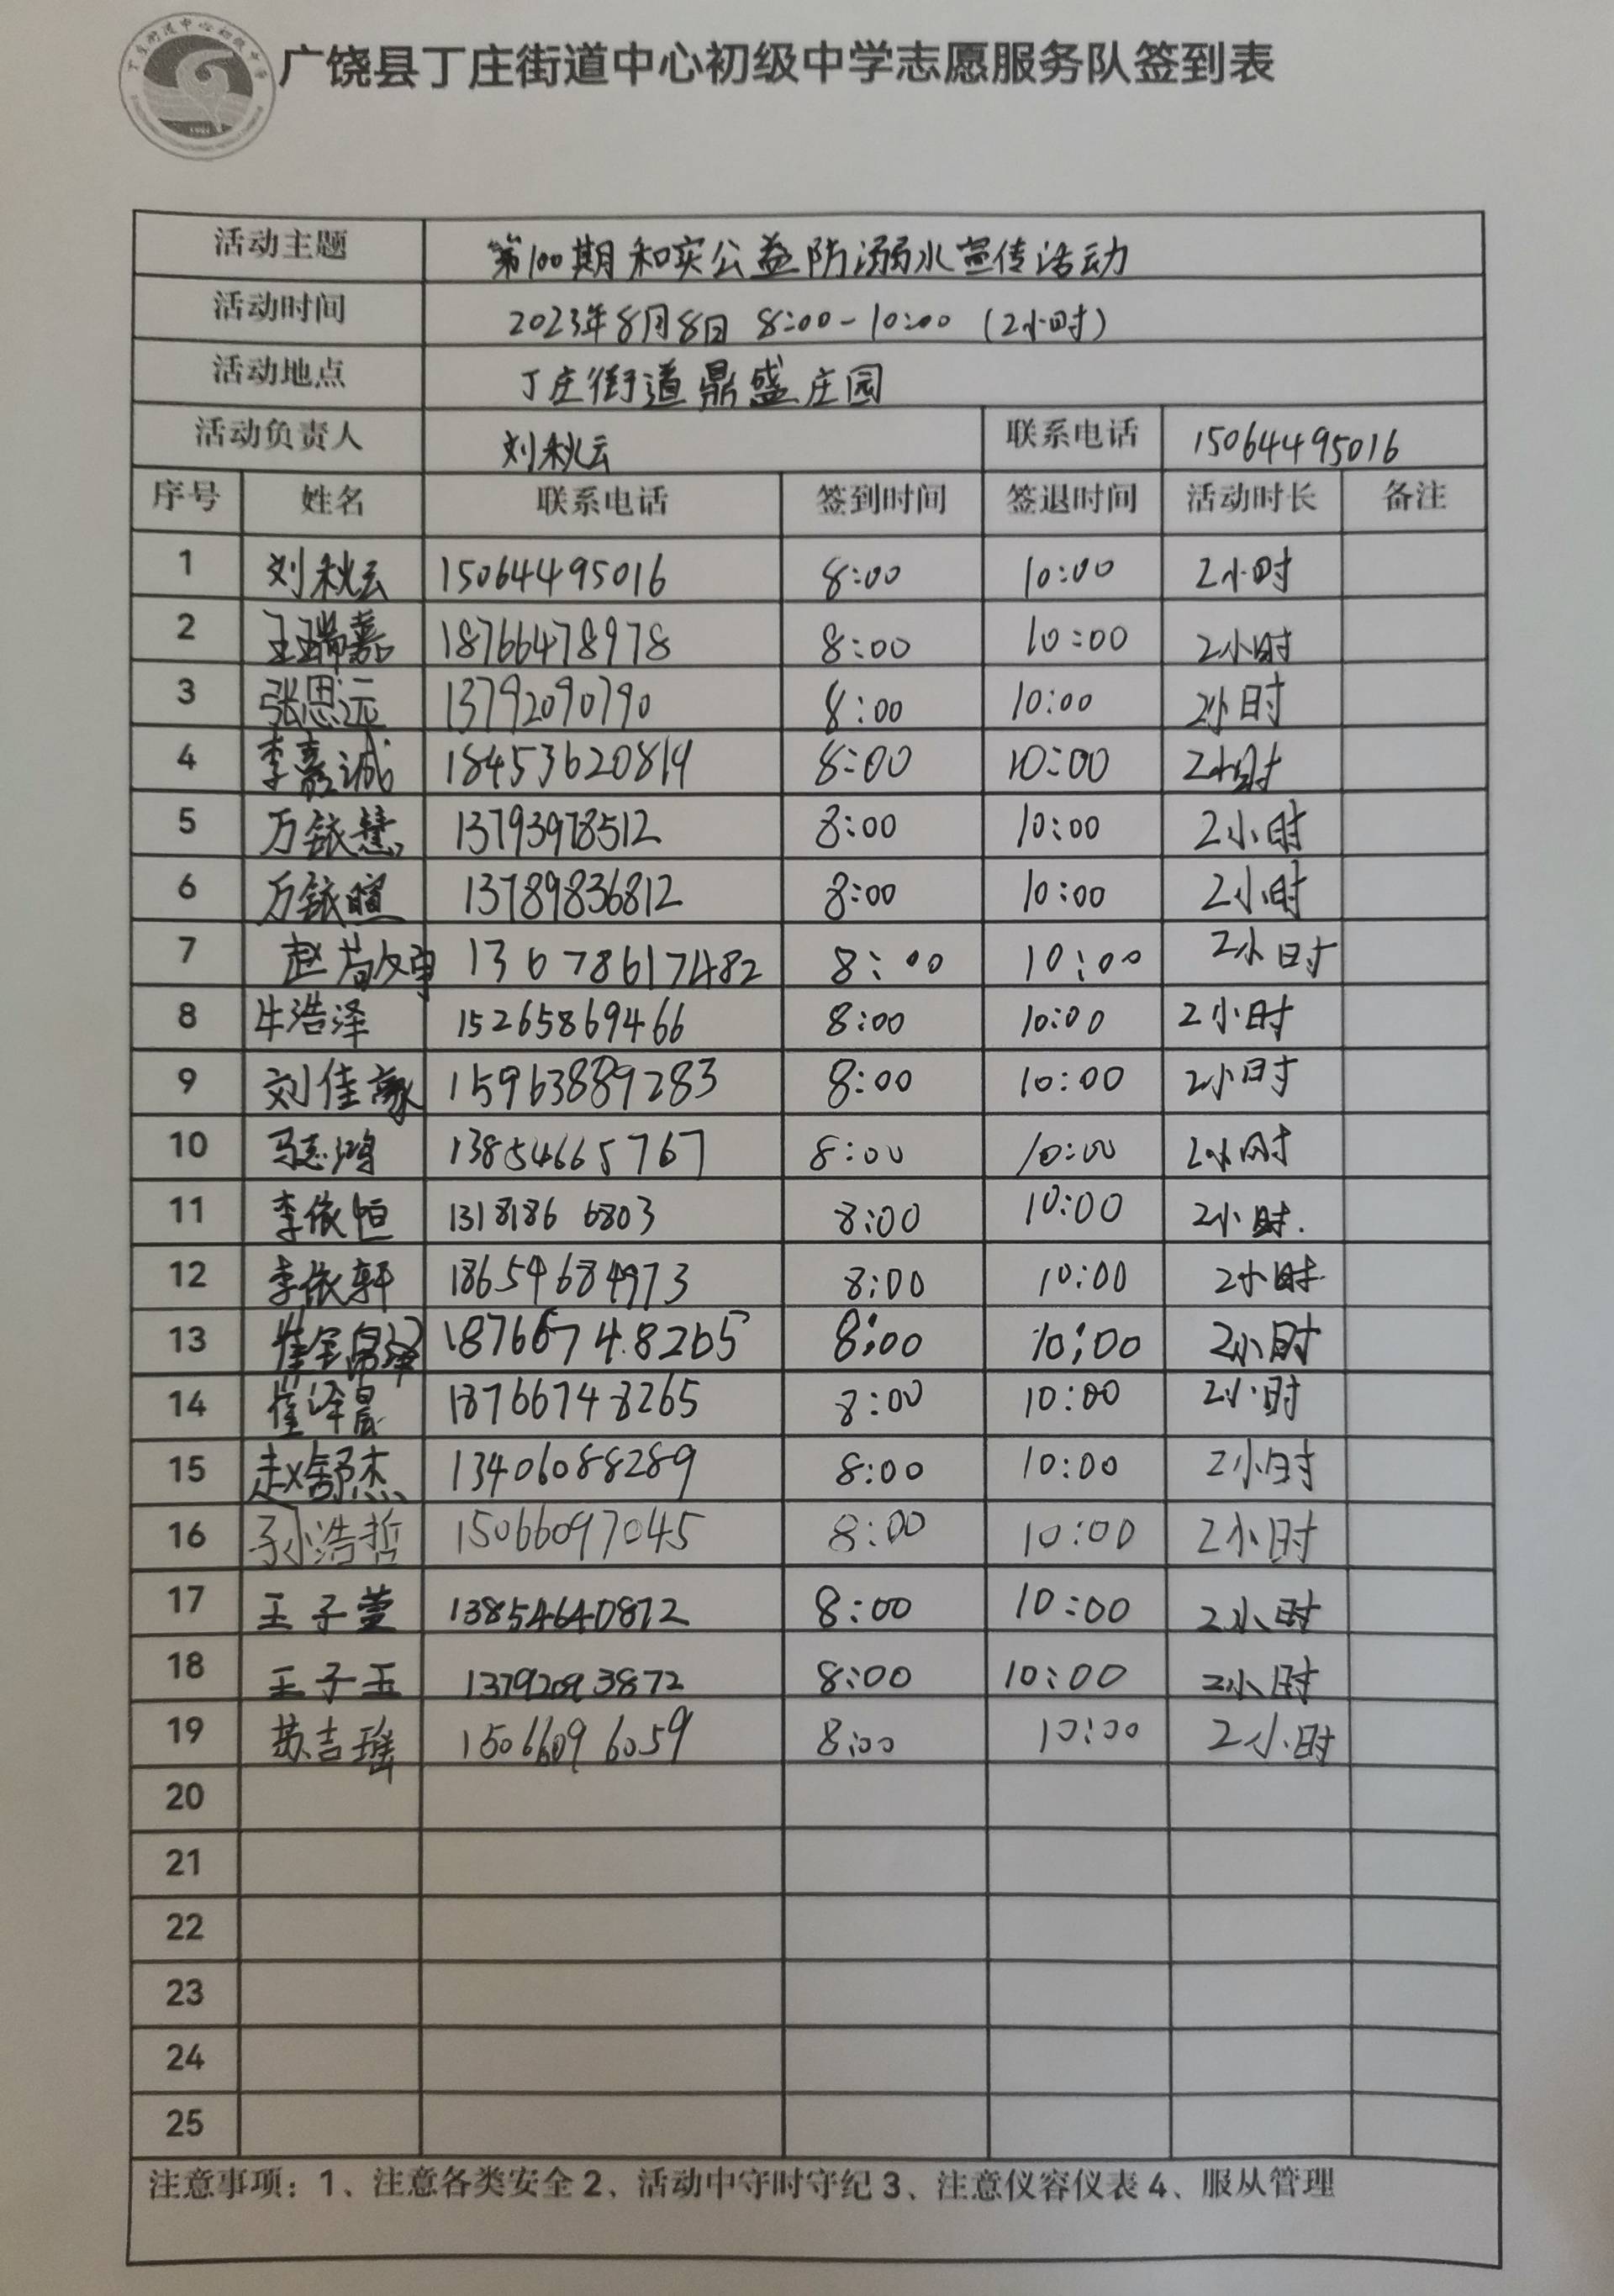 广饶县丁庄街道中心初级中学志愿服务队签到表
活动主题 第100期和实公益防溺水宣传活动
活动时间 2023年8月8日 8:00-10:00 (2小时)
活动地点 丁庄街道鼎盛庄园
活动负责人 刘秋云 联系电话 15064495016
序号 姓名 联系电话 签到时间 签退时间 活动时长 备注
1 刘秋云 15064495016 8:00 10:00 2小时
2 王瑞嘉 18766478978 8:00 10:00 2小时
3 张恩远 13792090790 8:00 10:00 2小时
4 李嘉诚 18453620819 8:00 10:00 2小时
5 万铱慧 13793978512 8:00 10:00 2小时
6 万铱暄 13789836812 8:00 10:00 2小时
7 赵 8:00 10:00 2小时
8 牛浩泽 15265869466 8:00 10:00 2小时
9 刘佳豪 15963889283 8:00 10:00 2小时
10 马志鸿 13854665767 8:00 10:00 2小时
11 李依恒 13181866803 8:00 10:00 2小时.
12 李依轩 18654684973 8:00 10:00 2小时.
13 崔 18766748265 8:00 10:00 2小时
14 崔泽晨 18766748265 8:00 10:00 2小时
15 赵舒杰 13406088289 8:00 10:00 2小时
16 孙浩哲 15066097045 8:00 10:00 2小时
17 王子萱 13854640872 8:00 10:00 2小时
18 王子玉 13792093872 8:00 10:00 2小时
19 苏吉瑶 15066096059 8:00 10:00 2小时
20
21
22
23
24
25
注意事项：1、注意各类安全 2、活动中守时守纪 3、注意仪容仪表 4、服从管理